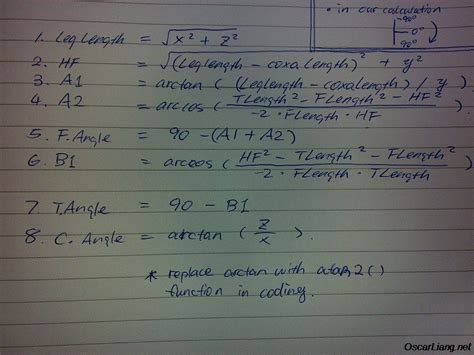 • in our calculation
-90°
0°
90°
1. Leg Length = √x² + z²
2. HF = √(Leglength - coxalength)² + y²
3. A1 = arctan ( (Leglength - coxalength) / y )
4. A2 = arccos ( TLength² - FLength² - HF² / -2 · FLength · HF )
5. F. Angle = 90 - (A1 + A2)
6. B1 = arccos ( HF² - TLength² - FLength² / -2 · FLength · TLength )
7. T.Angle = 90 - B1
8. C. Angle = arctan ( z / x ).
* replace arctan with atan2()
function in coding.
OscarLiang.net